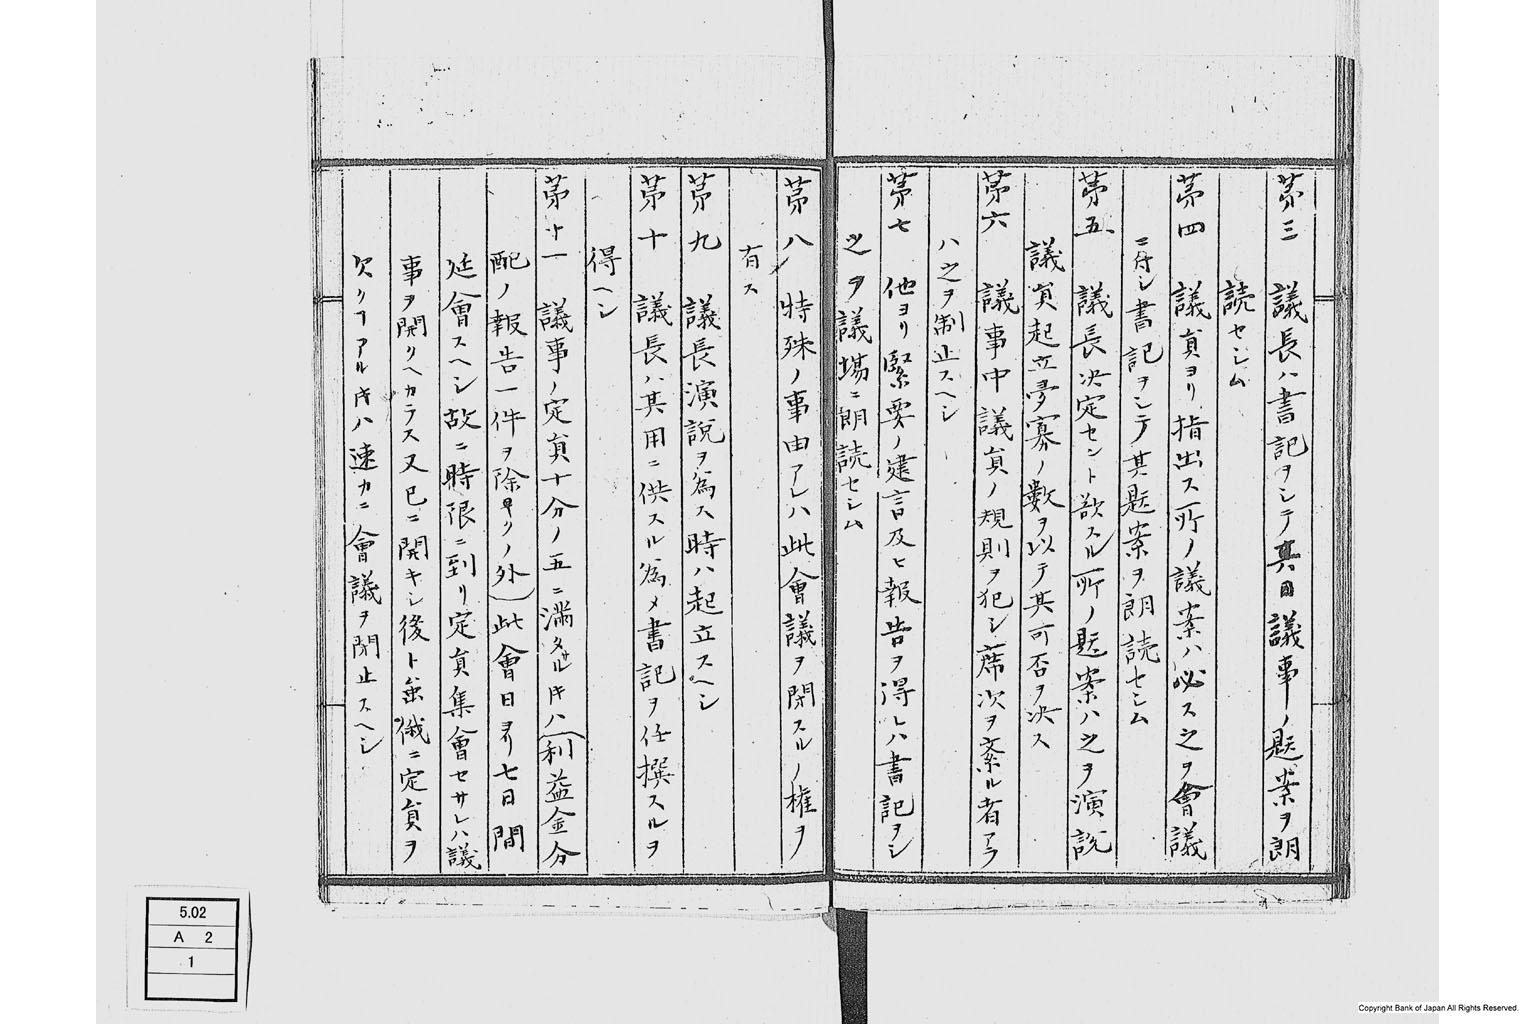 第三　議長ハ書記ヲシテ其日議事ノ題案ヲ朗
読セシム
第四　議員ヨリ指出ス所ノ議案ハ必ス之ヲ會議
ニ付シ書記ヲシテ其題案ヲ朗読セシム
第五　議長決定セント欲スル所ノ題案ハ之ヲ演説
議員起立多寡ノ數ヲ以テ其可否ヲ决ス
第六　議事中議員ノ規則ヲ犯シ席次ヲ紊ル者アラ
ハ之ヲ制止スヘシ
第七　他ヨリ緊要ノ建言及ヒ報告ヲ得レハ書記ヲシ
之ヲ議場ニ朗読セシム
第八　特殊ノ事由アレハ此會議ヲ閉スルノ權ヲ
有ス
第九　議長演說ヲ為ス時ハ起立スヘシ
第十　議長ハ其用ニ供スル為メ書記ヲ任撰スルヲ
得ヘシ
第十一　議事ノ定員十分ノ五ニ満タサル片ハ（利益金分
配ノ報告一件ヲ除クノ外）此會日ヨリ七日間
延會スヘシ故ニ時限ニ到リ定員集會セサレハ議
事ヲ開クヘカラス又已ニ開キシ後ト雖俄ニ定員ヲ
欠クヿアル片ハ速カニ會議ヲ閉止スヘシ
5.02
A 2
1
Copyright Bank of Japan All Rights Reserved.